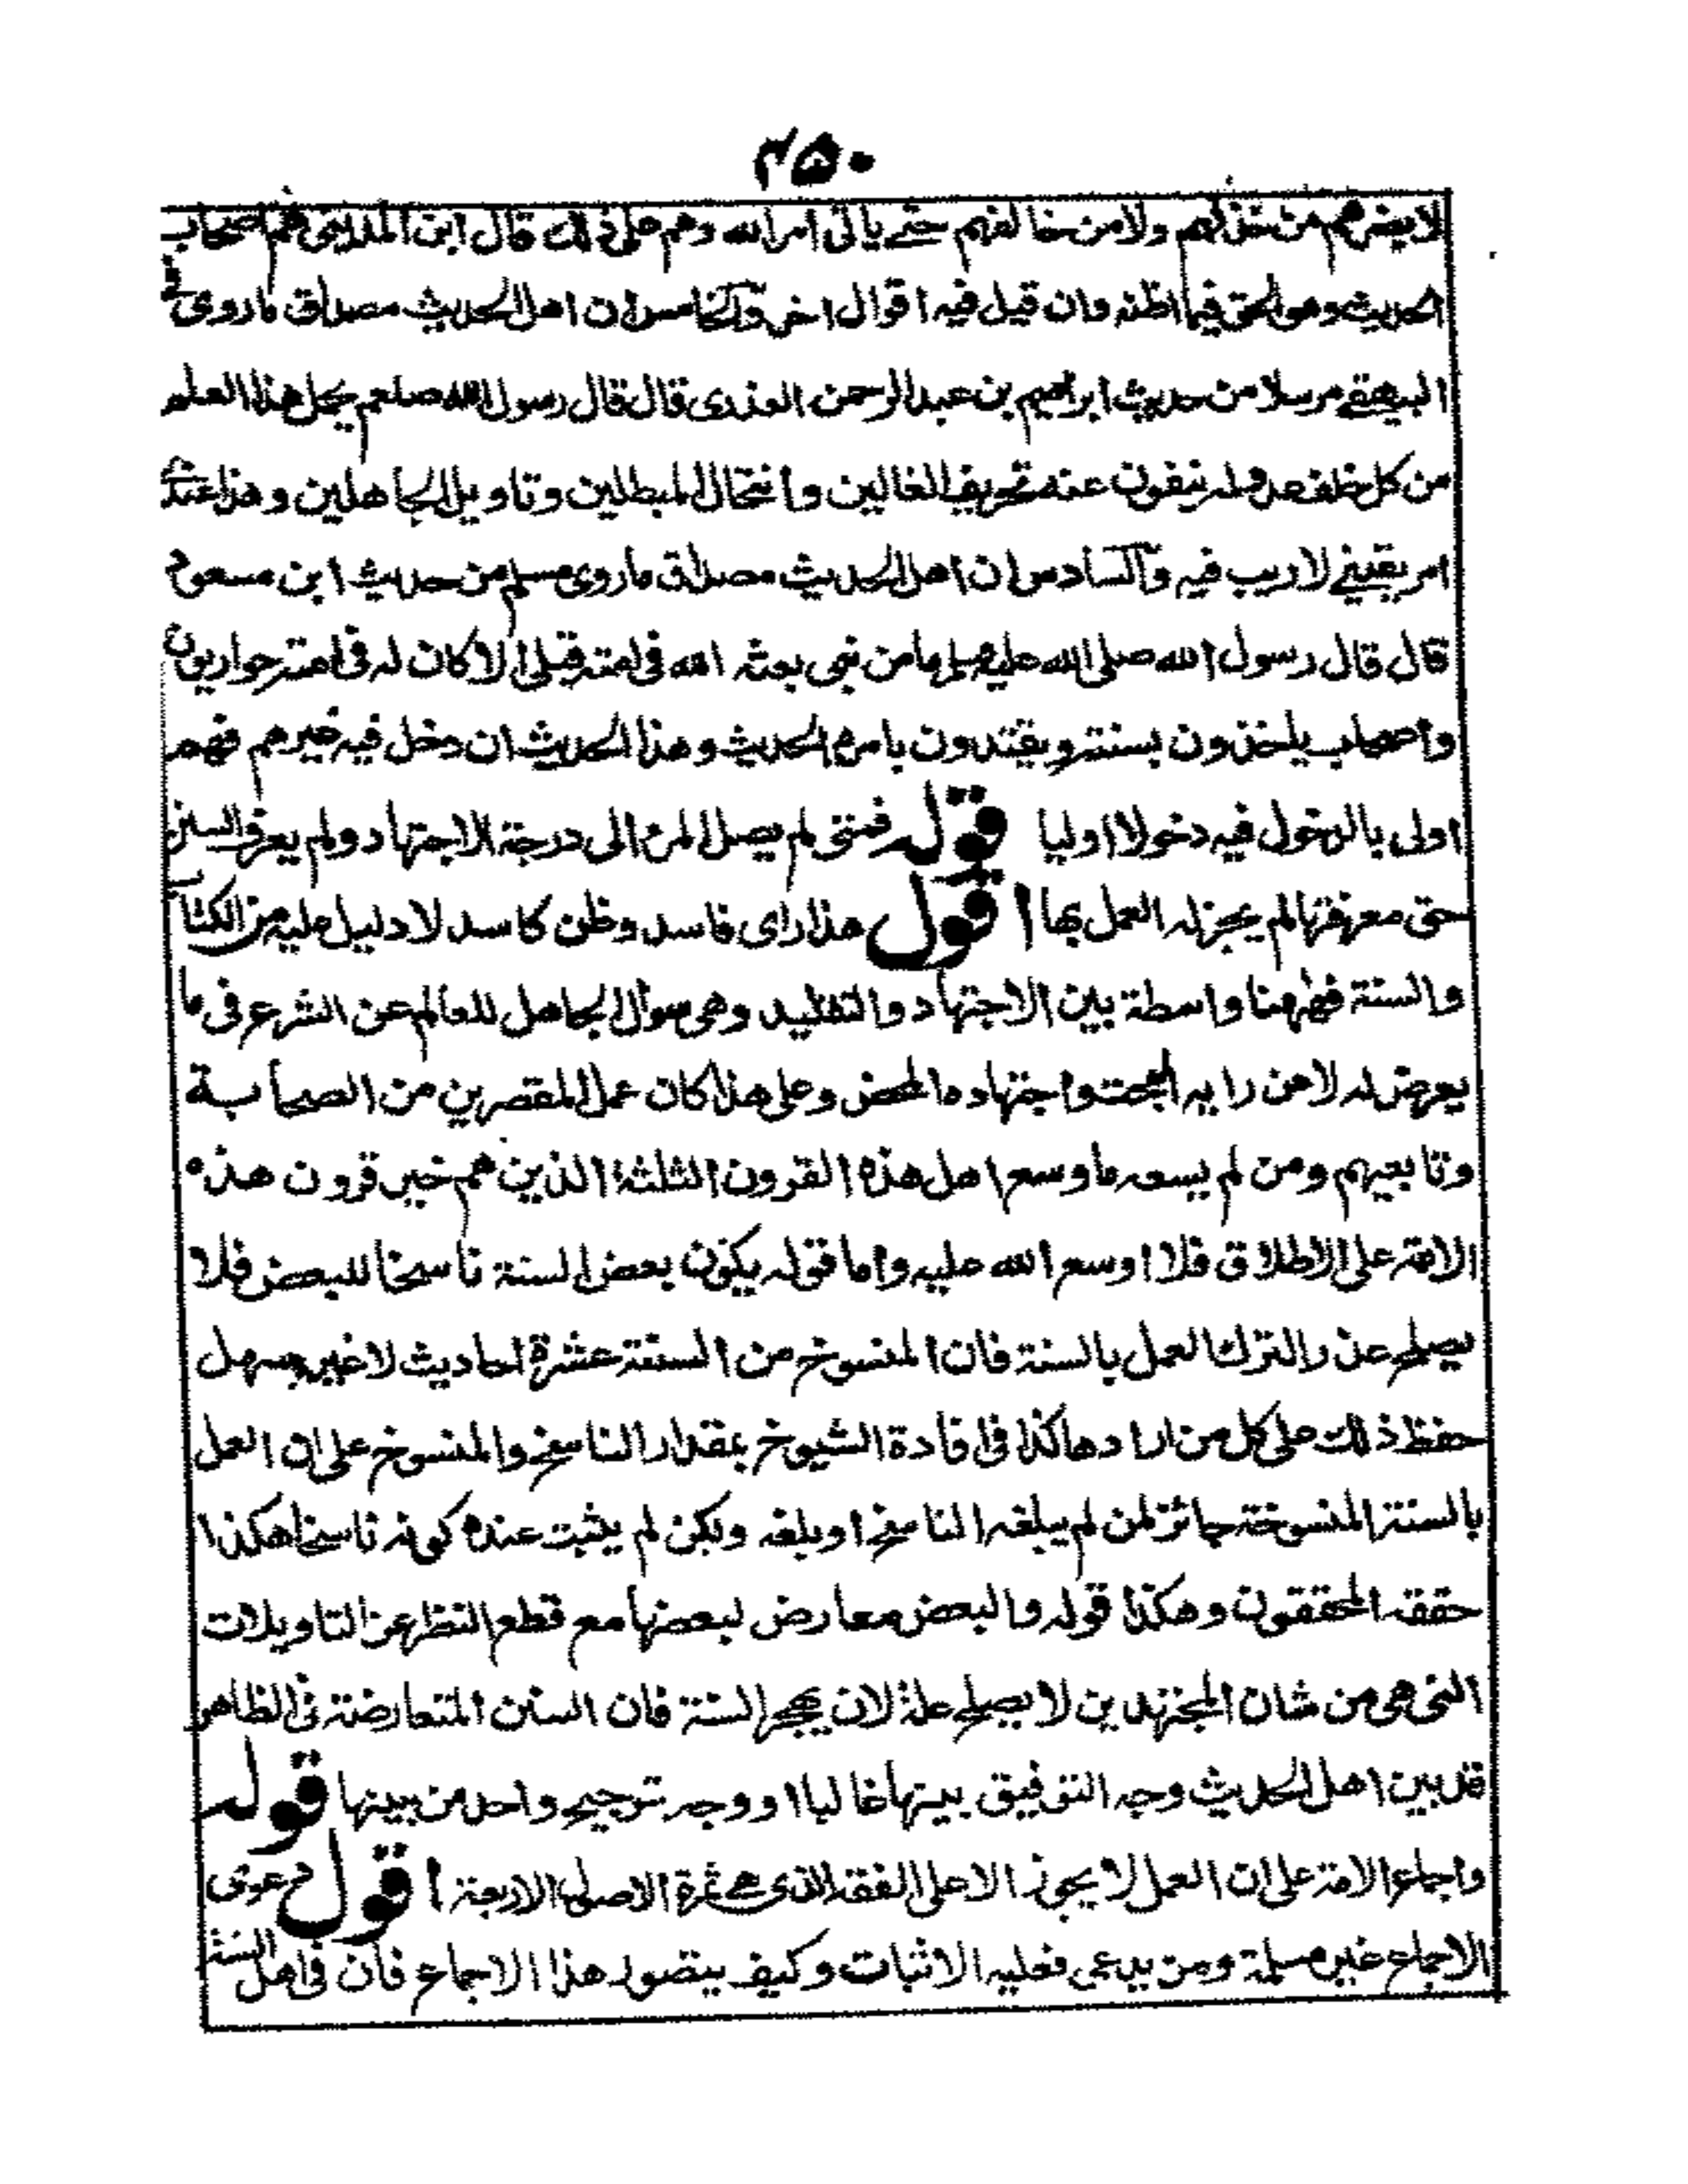 ٢٥٠
لا يضرهم من خذلهم ولا من خالفهم حتے ياتى امر الله وهم على ذلك قال ابن المدينى هم اصحاب
الحديث وهو الحق فيما اظنه وان قيل فيه اقوال اخر والخامس ان اهل الحديث مصداق ما روى فى
البيهقے مرسلا من حديث ابراهيم بن عبد الرحمن العذرى قال قال رسول الله صلعم يحمل هذا العلم
من كل خلف عدوله ينفون عنه تحريف الغالين وانتحال المبطلين وتاويل الجاهلين وهذا عندى
امر يقينے لا ريب فيه والسادس ان اهل الحديث مصداق ما روى مسلم من حديث ابن مسعود
قال قال رسول الله صلى الله عليه وسلم ما من نبى بعثه الله فى امته قبلى الا كان له فى امته حواريون
واصحاب ياخذون بسنته ويقتدون بامره الحديث وهذا الحديث ان دخل فيه غيرهم فهم
اولى بالدخول فيه دخولا اوليا قوله فمتى لم يصل المرء الى درجة الاجتهاد ولم يعرف السنن
حق معرفتها لم يجز له العمل بها اقول هذا راى فاسد وظن كاسد لا دليل عليه من الكتاب
والسنة فههنا واسطة بين الاجتهاد والتقليد وهى سوال الجاهل للعالم عن الشرع فى ما
يعرض له لا عن رايه البحت واجتهاده المحض وعلى هذا كان عمل المقصرين من الصحابة
وتابعيهم ومن لم يسعه ما وسع اهل هذه القرون الثلثة الذين هم خير قرون هذه
الامة على الاطلاق فلا اوسع الله عليه واما قوله يكون بعض السنة ناسخا للبعض فلا
يصلح عذرا لترك العمل بالسنة فان المنسوخ من السنة عشرة احاديث لا غير ويسهل
حفظ ذلك على كل من ارادها كذا فى افادة الشيوخ بمقدار الناسخ والمنسوخ على ان العمل
بالسنة المنسوخة جائز لمن لم يبلغه الناسخ او بلغه ولكن لم يثبت عنده كونه ناسخا هكذا
حققه المحققون وهكذا قوله والبعض معارض لبعضها مع قطع النظر عن التاويلات
التى هى من شان المجتهدين لا يصلح عذرا لان يهجر السنة فان السنن المتعارضة فى الظاهر
قد بين اهل الحديث وجه التوفيق بينها غالبا او وجه ترجيح واحد من بينها قوله
واجماع الامة على ان العمل لا يجوز الا على الفقه الذى هے ثمرة الاصل الاربعة اقول دعوى
الاجماع غير مسلمة ومن يدعى فعليه الاثبات وكيف يتصور هذا الاجماع فان فى اهل السنة